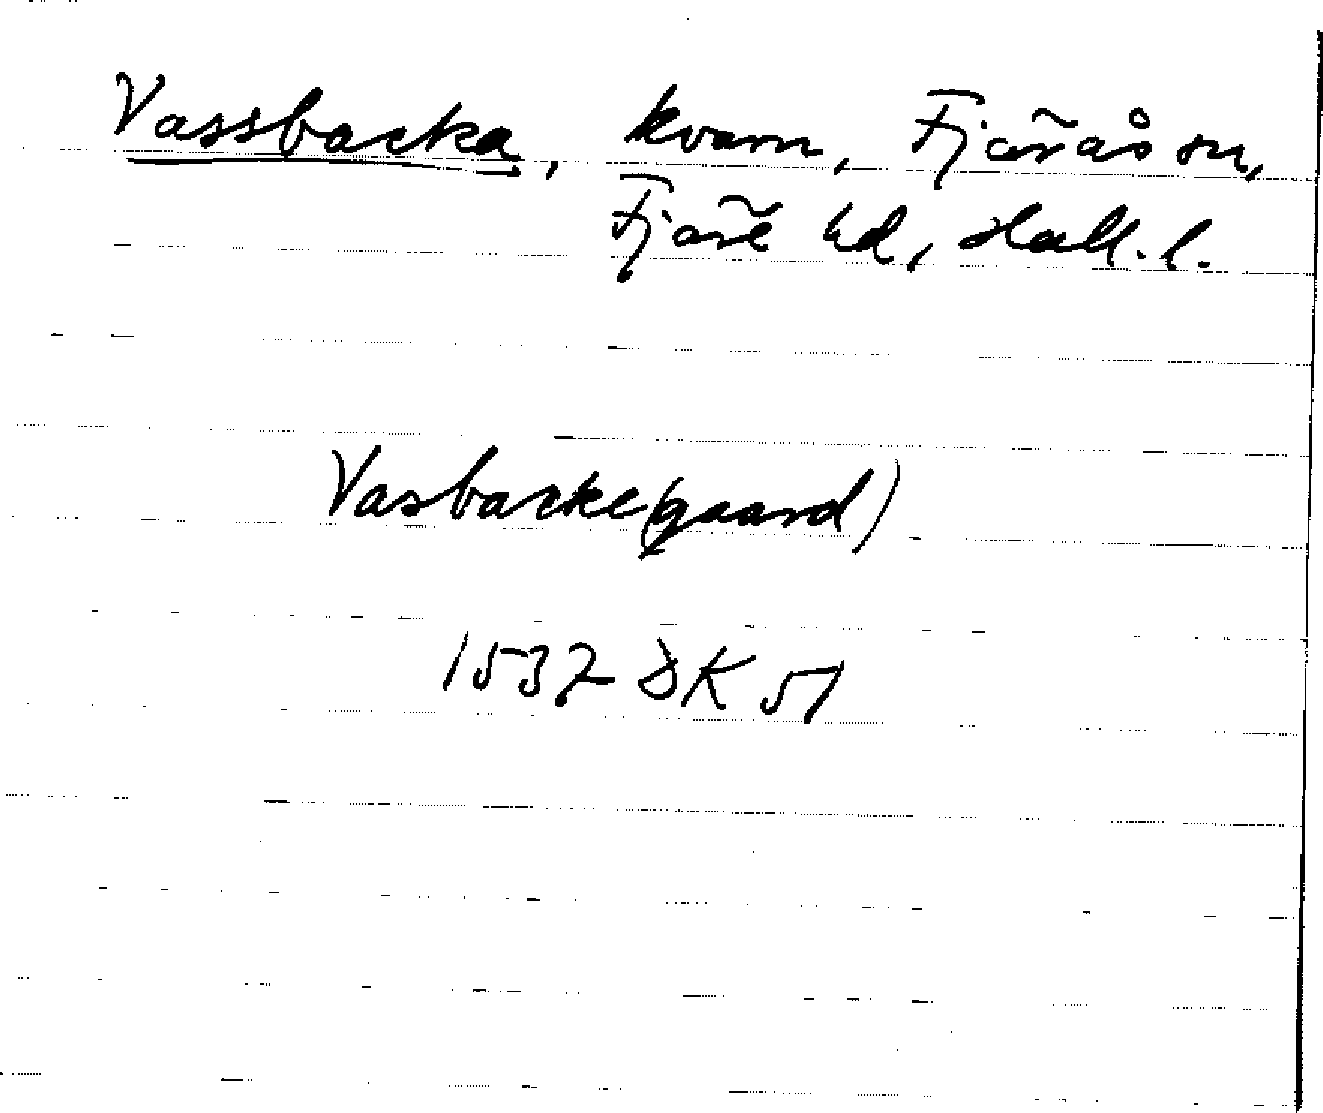 Vassbacka, kvarn, Fjärås sn,
Fjäre hd, Hall. l.
Vasbacke(gaard)
1532 DK 51